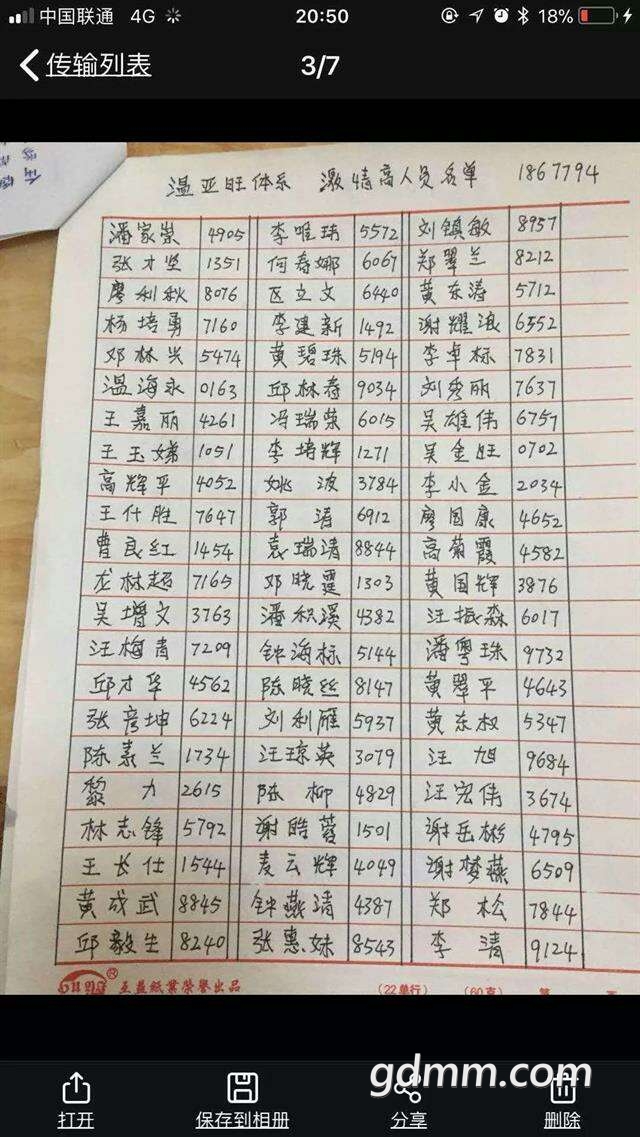 中国联通 4G 20:50 18%
传输列表 3/7
温亚旺体系 激情高人员名单 1867794
潘家崇 4905 李唯玮 5572 刘镇敏 8957
张才坚 1351 何春娜 6067 郑翠兰 8212
廖利秋 8076 区立文 6440 黄东涛 5712
杨培勇 7160 李建新 1492 谢耀浪 6552
邓林兴 5474 黄碧珠 5194 李卓标 7831
温海永 0163 邱林春 9034 刘秀丽 7637
王嘉丽 4261 冯瑞荣 6015 吴雄伟 6757
王玉娣 1051 李培辉 1271 吴金旺 0702
高辉平 4052 姚波 3784 李小金 2034
王仕胜 7647 郭涛 6912 廖国康 4652
曹良红 1454 袁瑞清 8844 高菊霞 4582
龙林超 7165 邓晓霆 1303 黄国辉 3876
吴增文 3763 潘积溪 4382 汪振森 6017
汪梅青 7209 钟海标 5144 潘粤珠 9732
邱才华 4562 陈晓丝 8147 黄翠平 4643
张彦坤 6224 刘利雁 5937 黄东权 5347
陈素兰 1734 汪琼英 3079 汪旭 9684
黎力 2615 陈柳 4829 汪宏伟 3674
林志锋 5792 谢皓蓉 1501 谢岳彬 4795
王长仕 1544 麦云辉 4049 谢梦燕 6509
黄成武 8845 钟燕清 4387 郑松 7844
邱毅生 8240 张惠妹 8543 李清 9124
玉益纸业荣誉出品 (22单行) (60克) 第
gdmm.com
打开 保存到相册 分享 删除